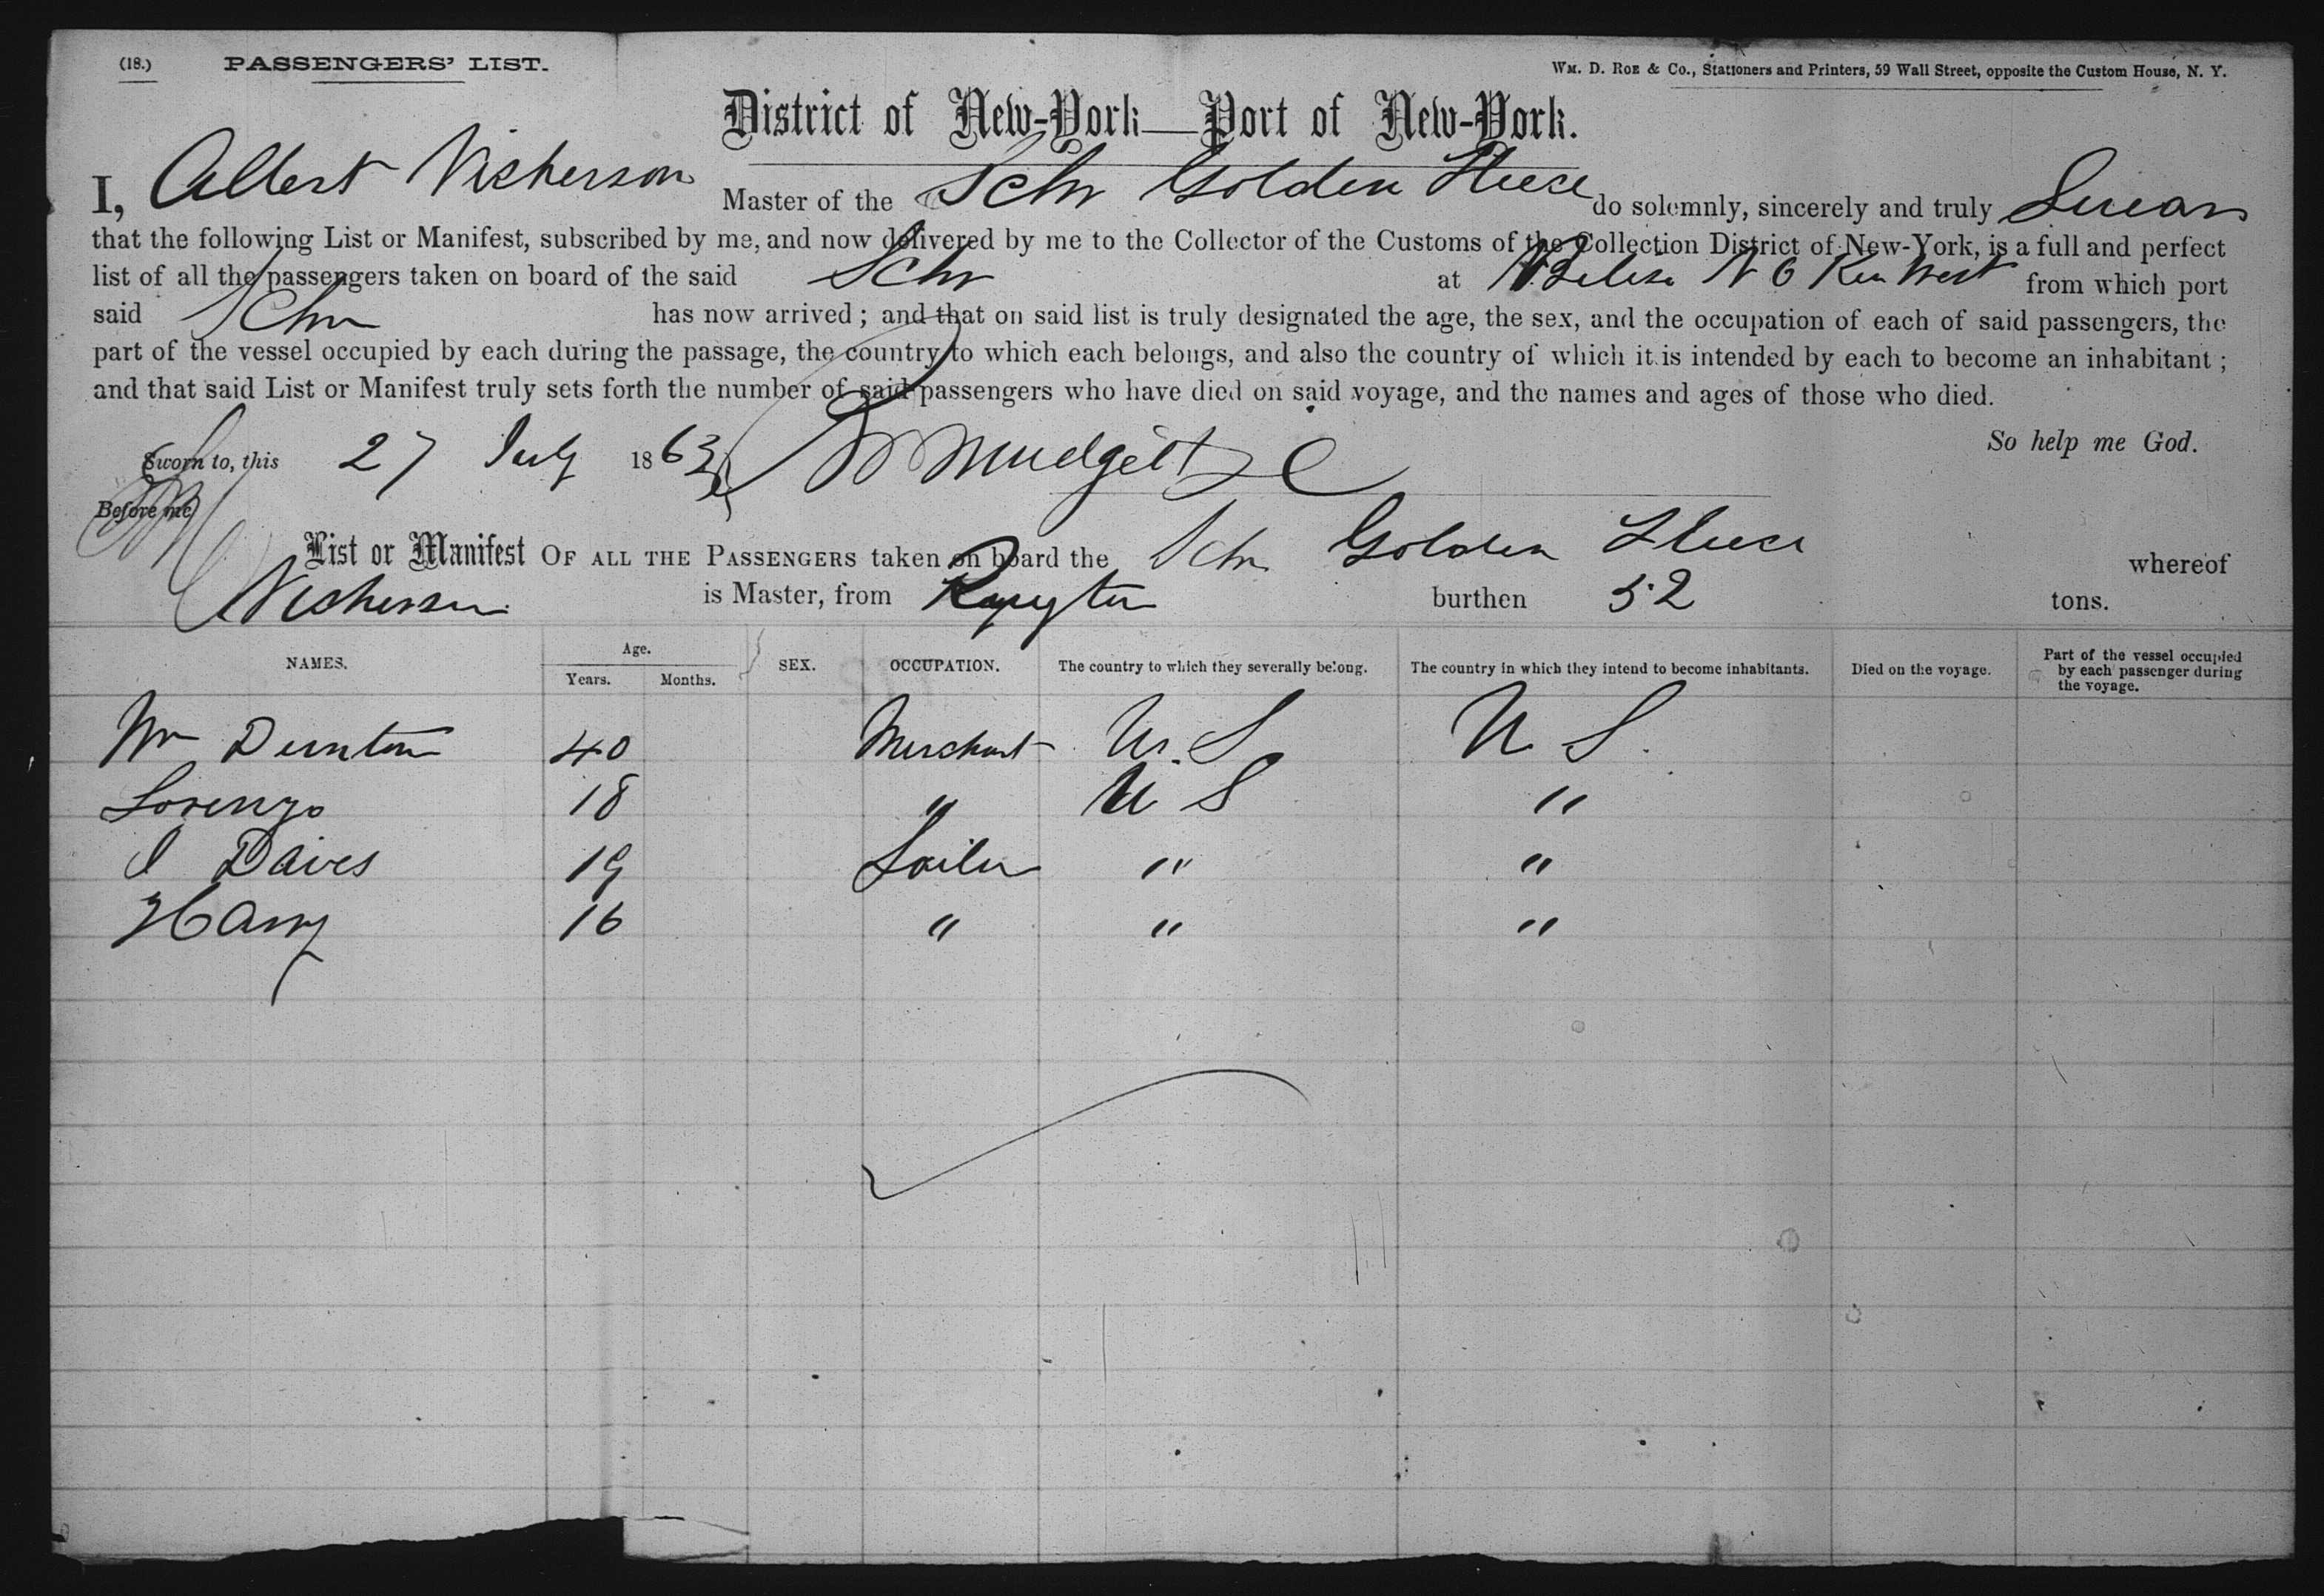 (18.) PASSENGERS' LIST. WM. D. ROE & Co., Stationers and Printers, 59 Wall Street, opposite the Custom House, N. Y.
District of New-York—Port of New-York.
I, Albert Nickerson Master of the Schr Golden Fleece do solemnly, sincerely and truly Swear
that the following List or Manifest, subscribed by me, and now delivered by me to the Collector of the Customs of the Collection District of New-York, is a full and perfect
list of all the passengers taken on board of the said Schr at Belize West from which port
said Schr has now arrived; and that on said list is truly designated the age, the sex, and the occupation of each of said passengers, the
part of the vessel occupied by each during the passage, the country to which each belongs, and also the country of which it is intended by each to become an inhabitant;
and that said List or Manifest truly sets forth the number of said passengers who have died on said voyage, and the names and ages of those who died.
So help me God.
Sworn to, this 27 July 1863 Mudgett
Before me
List or Manifest OF ALL THE PASSENGERS taken on board the Schr Golden Fleece whereof
Nickerson is Master, from burthen 52 tons.
NAMES. Age. Years. Months. SEX. OCCUPATION. The country to which they severally belong. The country in which they intend to become inhabitants. Died on the voyage. Part of the vessel occupied by each passenger during the voyage.
Wm Dunton 40 Merchant U. S U S.
Lorenzo 18 " U S "
Daives 19 Sailor " "
Harry 16 " " "